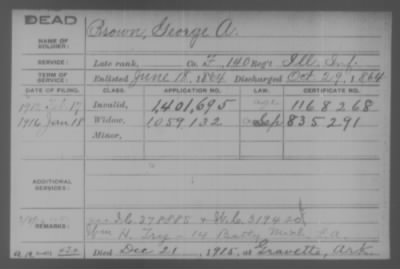 DEAD
NAME OF SOLDIER: Brown, George A.
SERVICE: Late rank, Co. F, 140 Reg't Ill. Inf.
TERM OF SERVICE: Enlisted June 18, 1864 Discharged Oct 29, 1864
DATE OF FILING. CLASS. APPLICATION NO. LAW. CERTIFICATE NO.
Invalid, 1,401,695 1168268
1916 Jan 18 Widow, 1059132 Sep 835291
Minor,
ADDITIONAL SERVICES:
REMARKS: I.C. 278885 &
Wm H. 14 Batty
Died Dec 21, 1915, at Gravette, Ark.